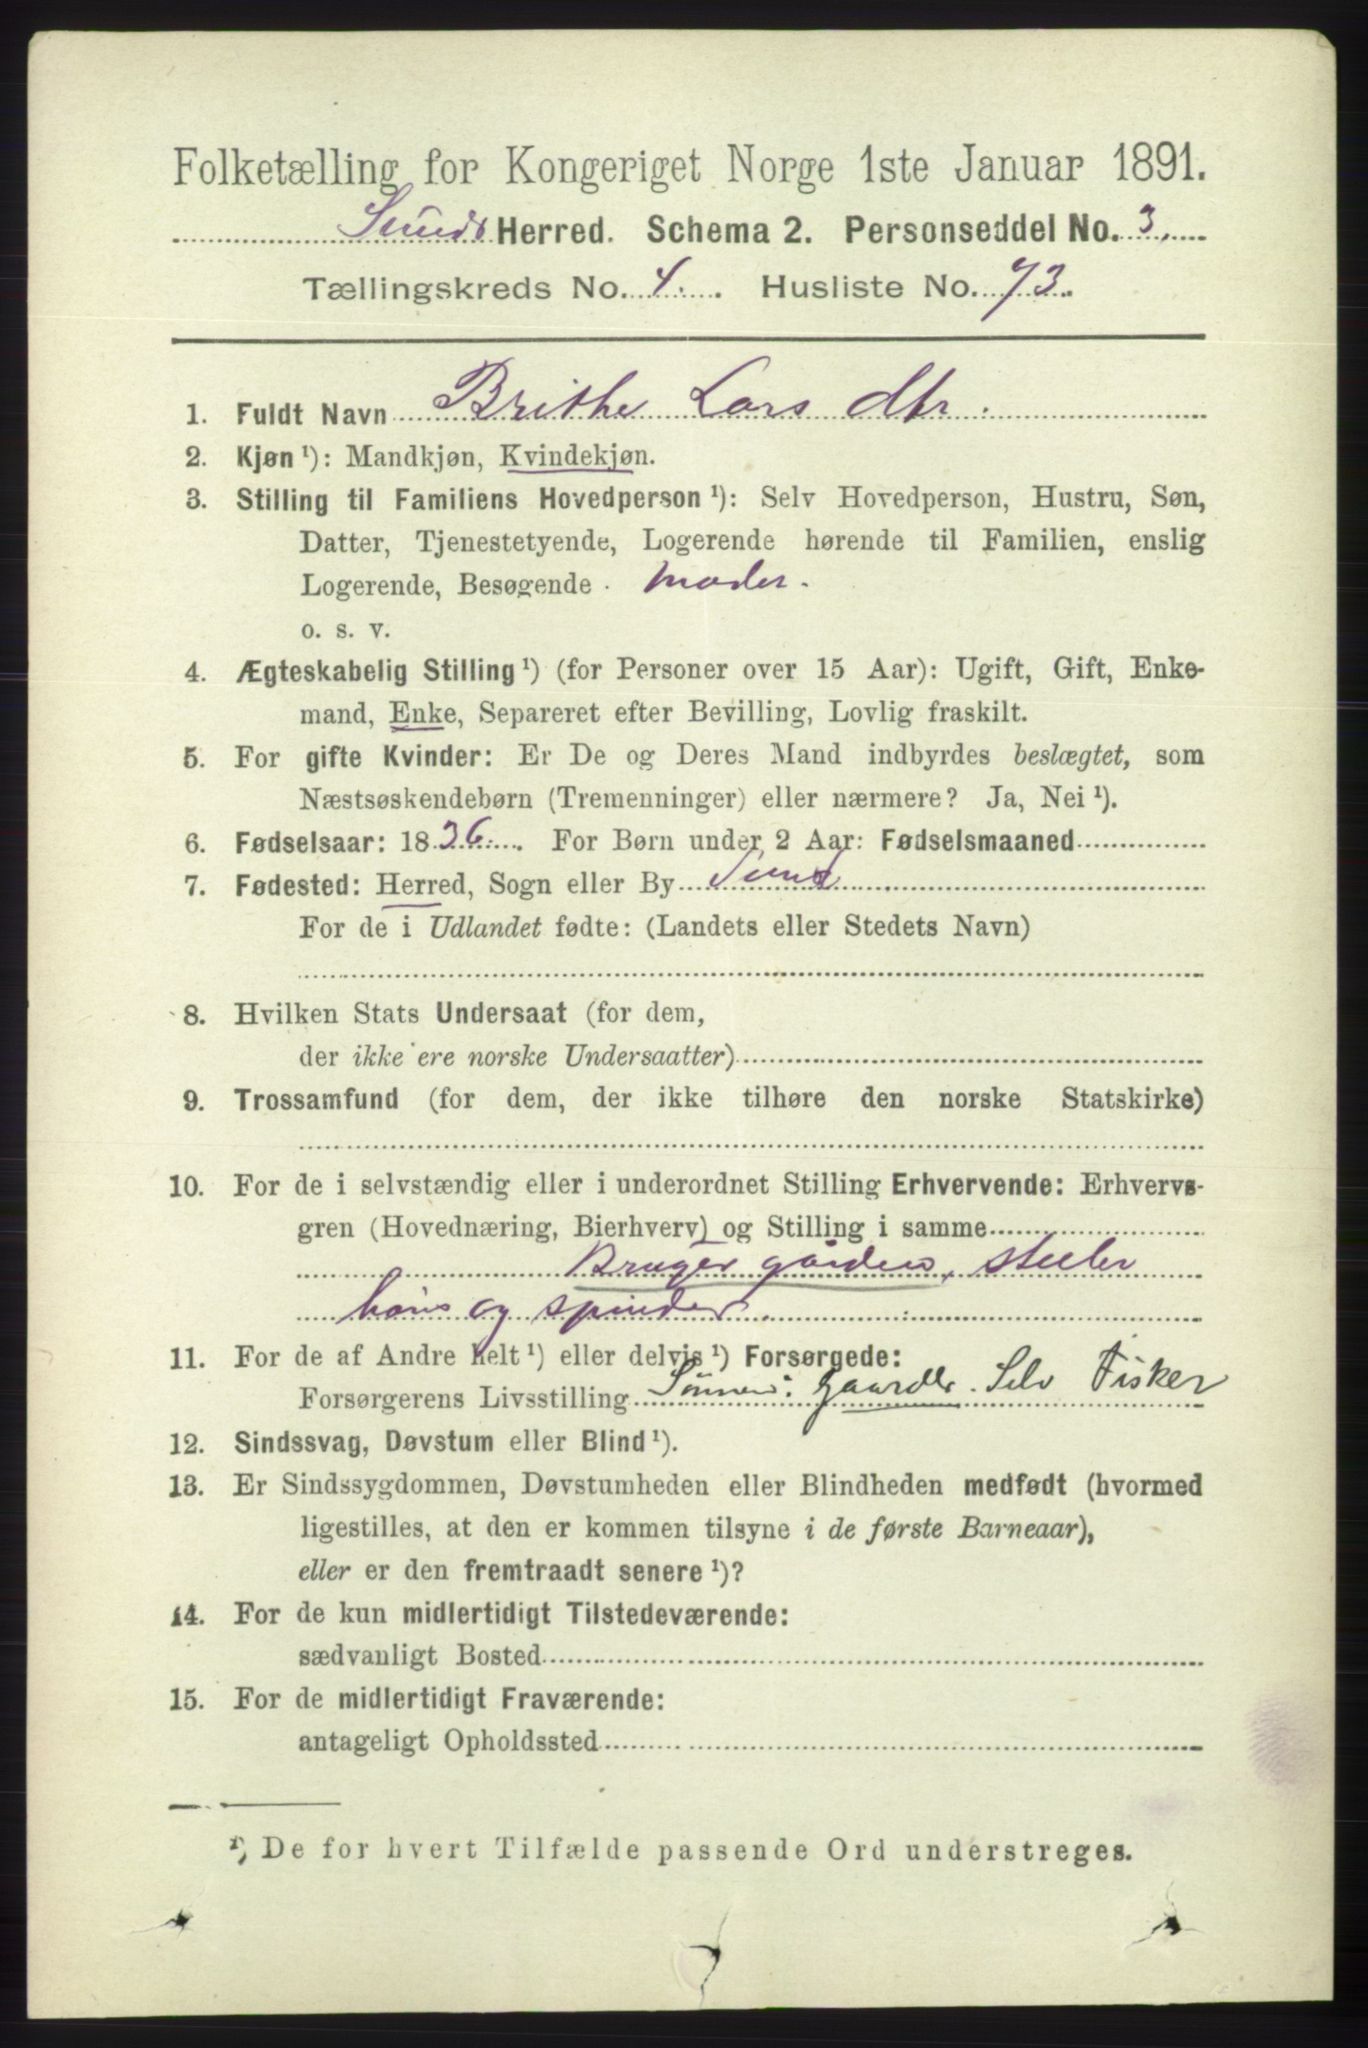 Folketælling for Kongeriget Norge 1ste Januar 1891.
Sunds Herred. Schema 2. Personseddel No. 3.
Tællingskreds No. 4. Husliste No. 73.
1. Fuldt Navn Brithe Lars dtr.
2. Kjøn ¹): Mandkjøn, Kvindekjøn.
3. Stilling til Familiens Hovedperson ¹): Selv Hovedperson, Hustru, Søn,
Datter, Tjenestetyende, Logerende hørende til Familien, enslig
Logerende, Besøgende . moder.
o. s. v.
4. Ægteskabelig Stilling ¹) (for Personer over 15 Aar): Ugift, Gift, Enke-
mand, Enke, Separeret efter Bevilling, Lovlig fraskilt.
5. For gifte Kvinder: Er De og Deres Mand indbyrdes beslægtet, som
Næstsøskendebørn (Tremenninger) eller nærmere? Ja, Nei ¹).
6. Fødselsaar: 1836. For Børn under 2 Aar: Fødselsmaaned
7. Fødested: Herred, Sogn eller By Sund
For de i Udlandet fødte: (Landets eller Stedets Navn)
8. Hvilken Stats Undersaat (for dem,
der ikke ere norske Undersaatter)
9. Trossamfund (for dem, der ikke tilhøre den norske Statskirke)
10. For de i selvstændig eller i underordnet Stilling Erhvervende: Erhvervs-
gren (Hovednæring, Bierhverv) og Stilling i samme
Bruger gården, steler
høns og spinder.
11. For de af Andre helt ¹) eller delvis ¹) Forsørgede:
Forsørgerens Livsstilling Sønnen: Gaardbr. Selv Fisker
12. Sindssvag, Døvstum eller Blind ¹).
13. Er Sindssygdommen, Døvstumheden eller Blindheden medfødt (hvormed
ligestilles, at den er kommen tilsyne i de første Barneaar),
eller er den fremtraadt senere ¹)?
14. For de kun midlertidigt Tilstedeværende:
sædvanligt Bosted
15. For de midlertidigt Fraværende:
antageligt Opholdssted
¹) De for hvert Tilfælde passende Ord understreges.